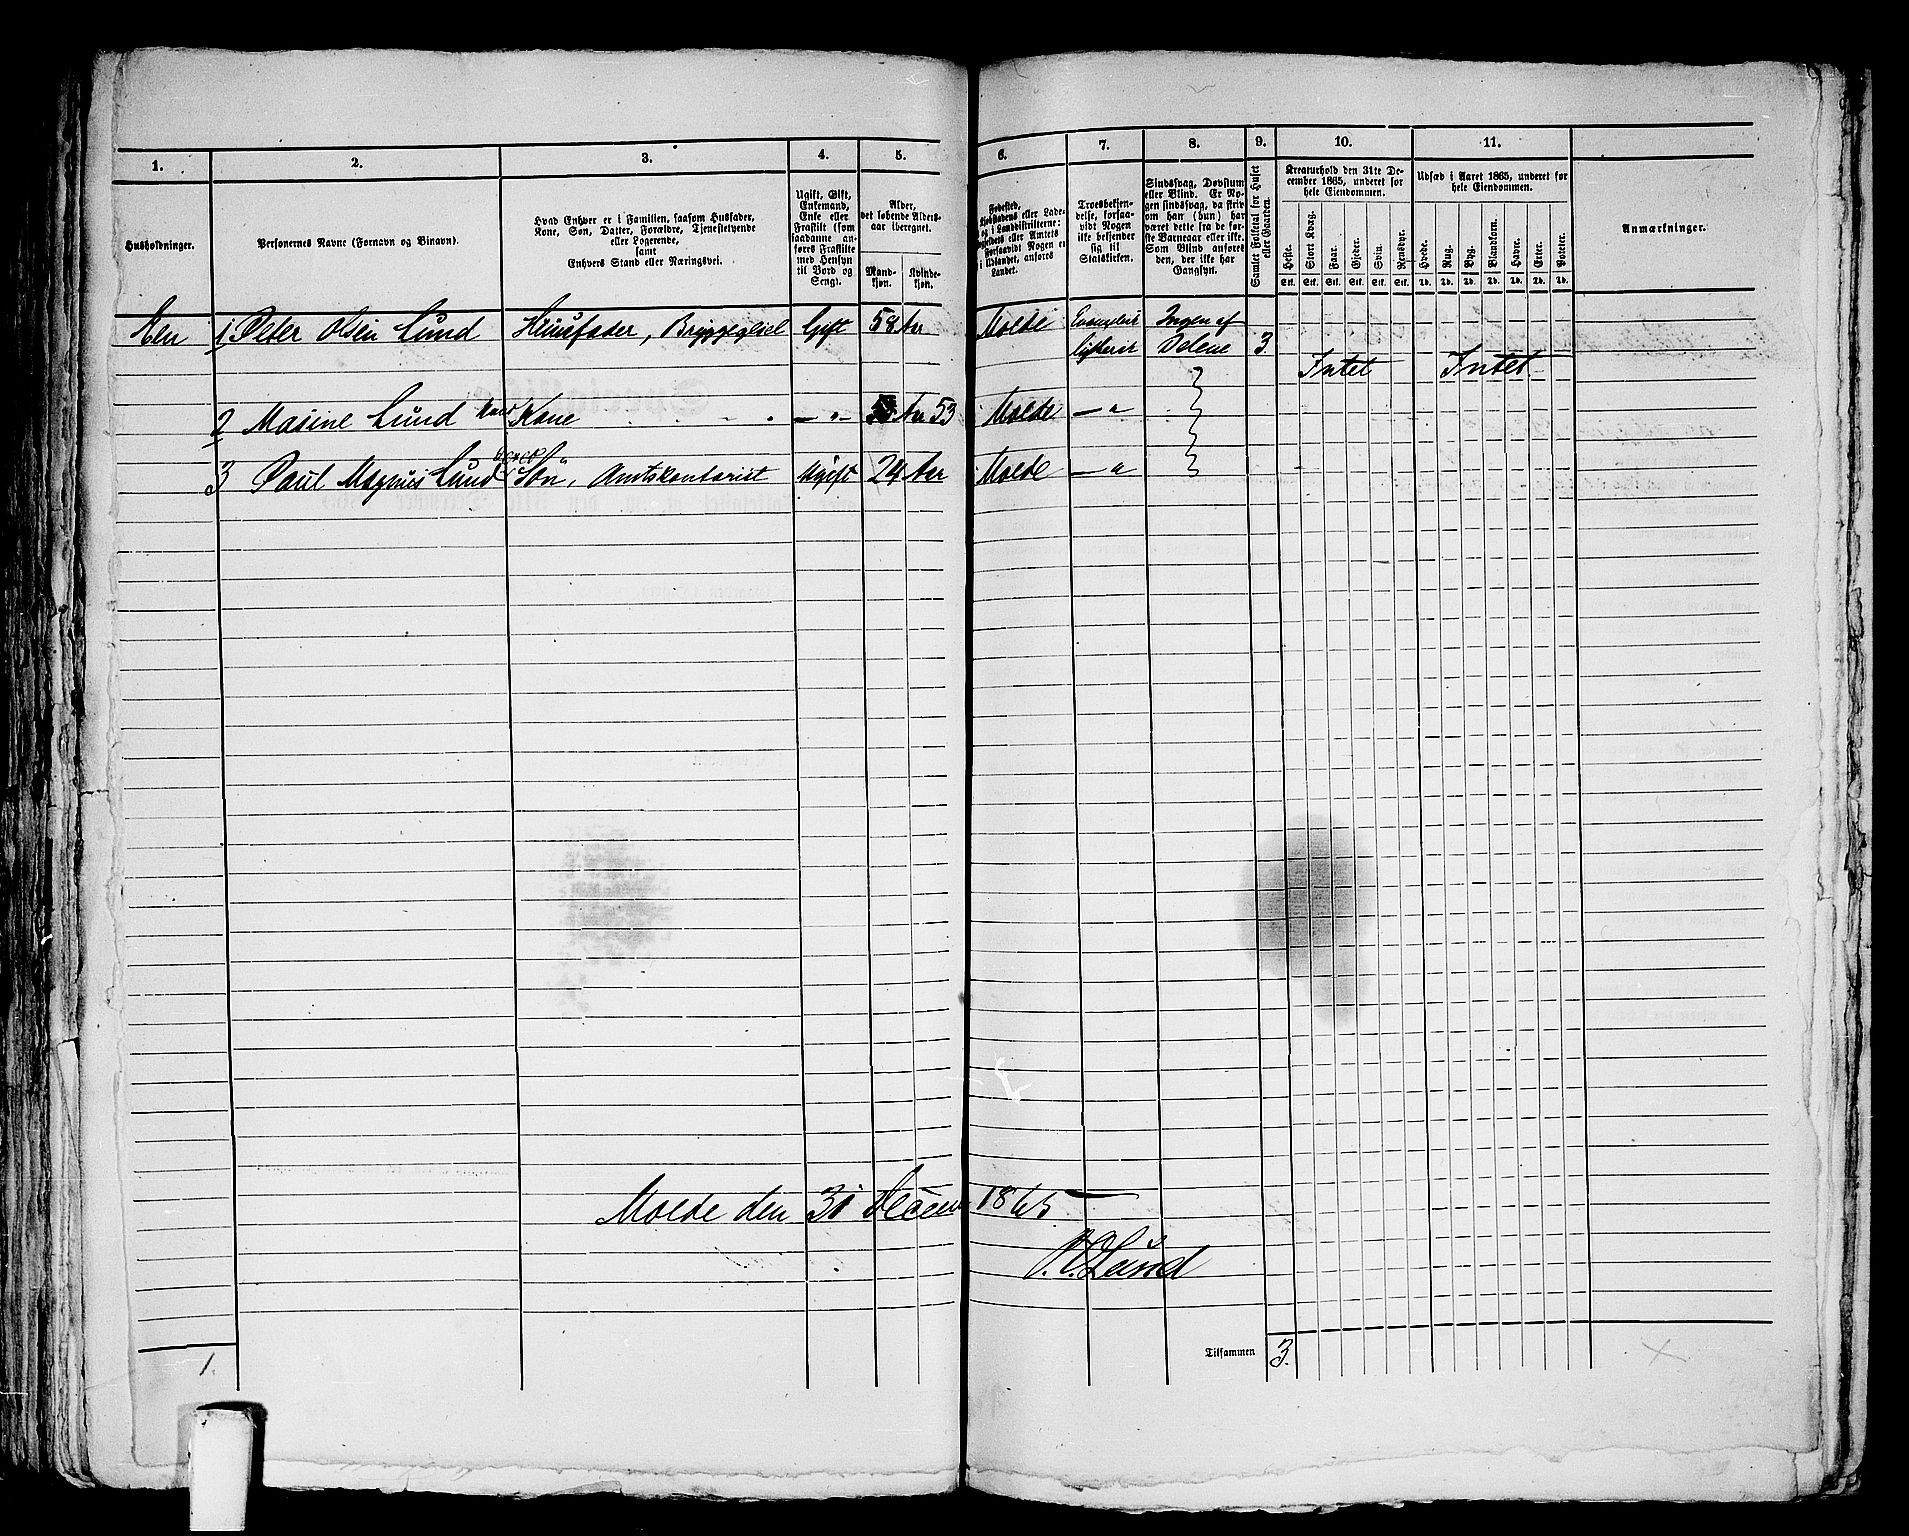 1. 2. 3. 4. 5. 6. 7. 8. 9. 10. 11.
Husholdninger.
Personernes Navne (Fornavn og Binavn).
Hvad Enhver er i Familien, saasom Husfader,
Kone, Søn, Datter, Forældre, Tjenestetyende
eller Logerende,
samt
Enhvers Stand eller Næringsvei.
Ugift, Gift,
Enkemand,
Enke eller
Fraskilt (som
saadanne an-
føres Fraskilte
med Hensyn
til Bord og
Seng).
Alder,
det løbende Alders-
aar iberegnet.
Mand-
kjøn.
Kvinde-
kjøn.
Fødested,
Kjøbstadens eller Lade-
og i Landdistrikterne:
eller Amtets
Forsaavidt Nogen er
i Udlandet, anføres
Landet.
Troesbekjen-
delse, forsaa-
vidt Nogen
ikke bekjender
sig til
Statskirken.
Sindssvag, Døvstum
eller Blind. Er No-
gen sindssvag, da skriv
om han (hun) har
været dette fra de før-
ste Barneaar eller ikke.
Som Blind anføres
den, der ikke har
Gangsyn.
Samlet Folketal for Huset
eller Gaarden.
Kreaturhold den 31te De-
cember 1865, underet for
hele Eiendommen.
Heste. Stort Kvæg. Faar. Gjeder. Svin. Rensdyr.
Stk. Stk. Stk. Stk. Stk. Stk.
Udsæd i Aaret 1865, underet for
hele Eiendommen.
Hvede. Rug. Byg. Blandkorn. Havre. Erter. Poteter.
Td. Td. Td. Td. Td. Td. Td.
Anmærkninger.
Een 1 Peter Olsen Lund Huusfader, Bryggegjæl Gift 58 Aar Molde Evangelisk Ingen af
luthersk Delene 3.
Intet Intet
2 Masine Lund Kone — " — Aar 53 Molde — "
3 Paul Magnus Lund Søn, Amtskontorist Ugift 24 Aar Molde — "
Molde den 31 Decem 1865
P. O. Lund
1. Tilsammen 3.